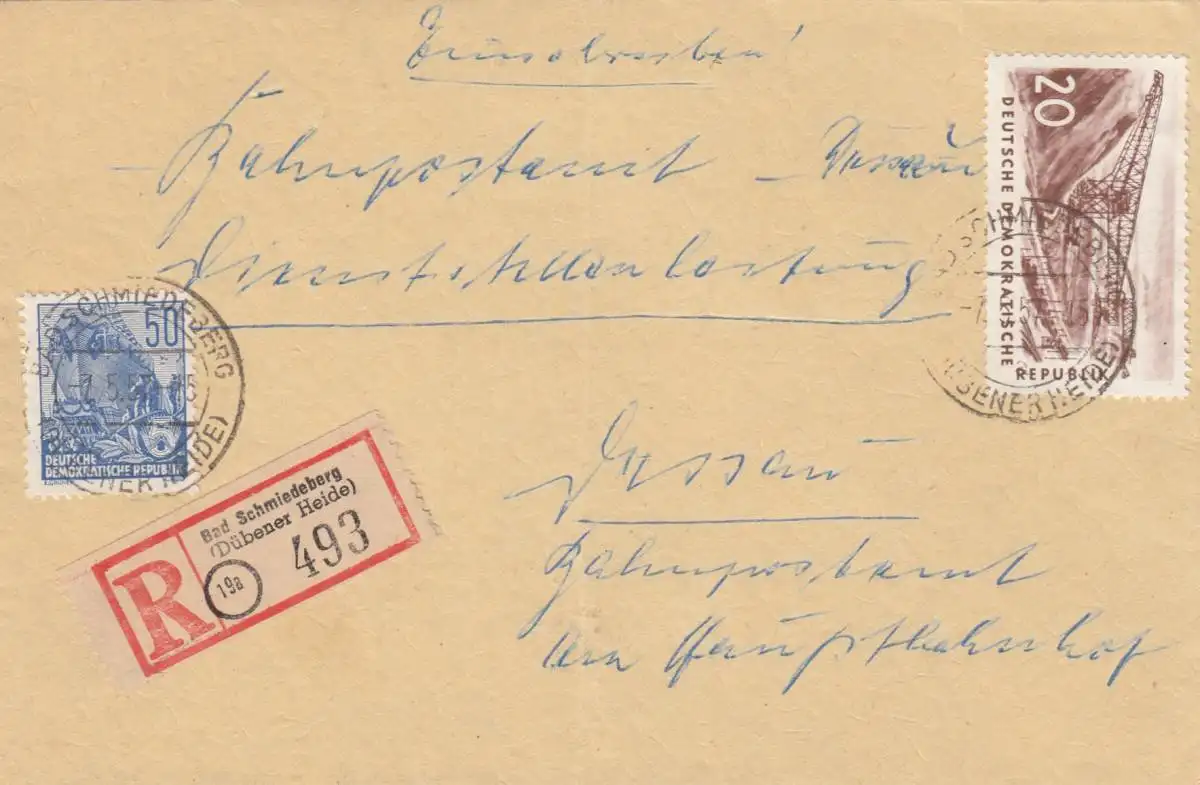 Einschreiben!
20
DEUTSCHE DEMOKRATISCHE REPUBLIK
- Bahnpostamt - Dessau
Dienststellenleitung
50
DEUTSCHE
DEMOKRATISCHE REPUBLIK
BAD SCHMIEDEBERG
-7.5.57
(DÜBENER HEIDE)
SCHMIEDEBERG
(DÜBENER HEIDE)
Dessau
Bahnpostamt
am Hauptbahnhof
R
Bad Schmiedeberg
(Dübener Heide)
19a
493